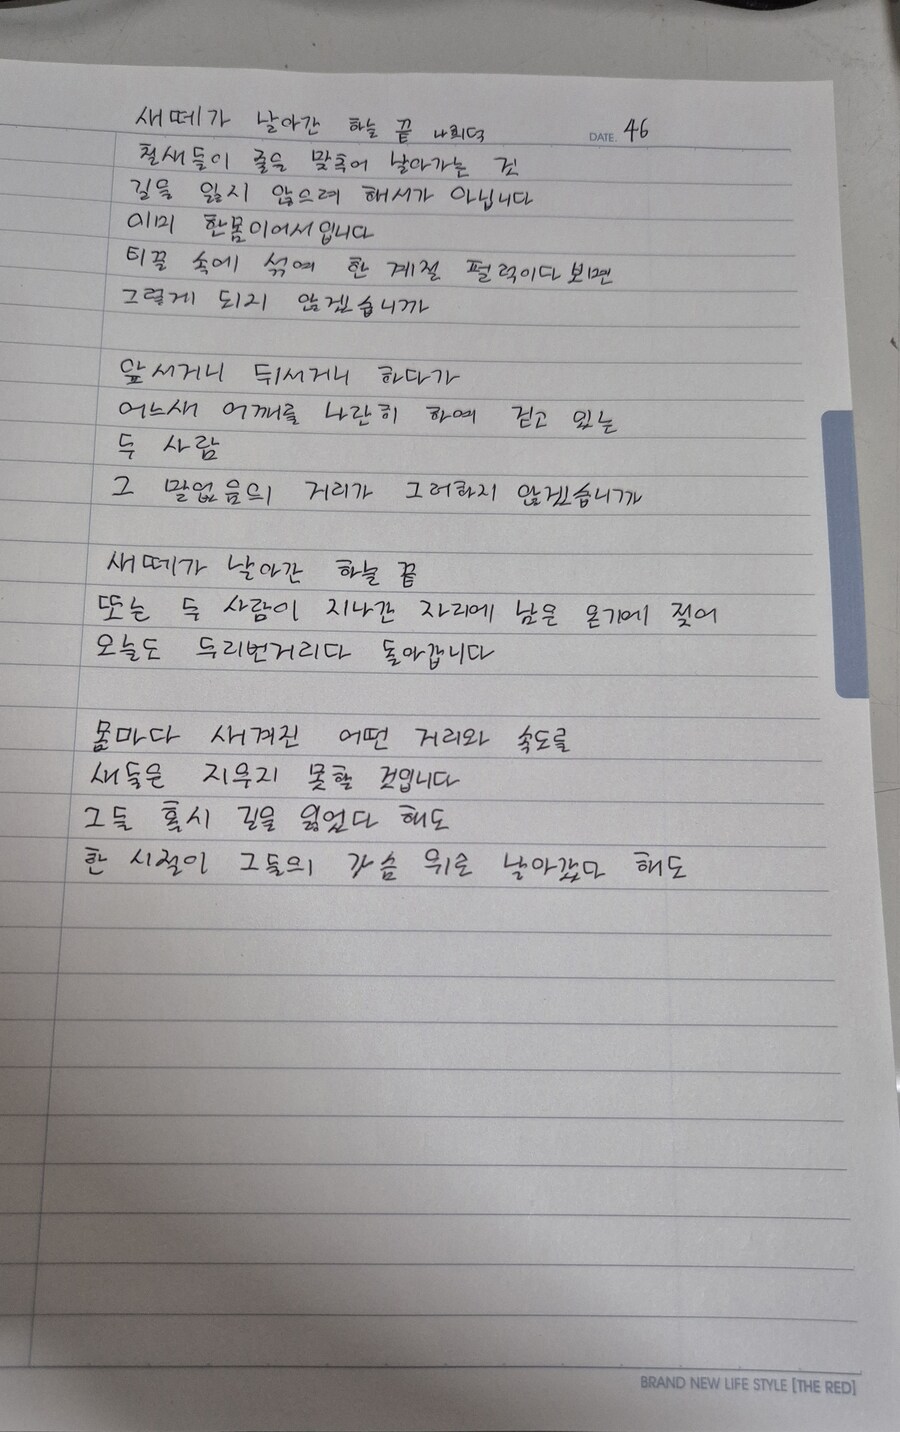 새떼가 날아간 하늘 끝 나희덕
DATE. 46
철새들이 줄을 맞추어 날아가는 것
길을 잃지 않으려 해서가 아닙니다
이미 한몸이어서입니다
티끌 속에 섞여 한 계절 펄럭이다 보면
그렇게 되지 않겠습니까
앞서거니 뒤서거니 하다가
어느새 어깨를 나란히 하여 걷고 있는
두 사람
그 말없음의 거리가 그러하지 않겠습니까
새떼가 날아간 하늘 끝
또는 두 사람이 지나간 자리에 남은 온기에 젖어
오늘도 두리번거리다 돌아갑니다
몸마다 새겨진 어떤 거리와 속도를
새들은 지우지 못할 것입니다
그들 혹시 길을 잃었다 해도
한 시절이 그들의 가슴 위로 날아갔다 해도
BRAND NEW LIFE STYLE [THE RED]